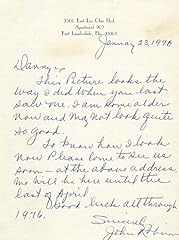 3500 East Las Olas Blvd.
Apartment 907
Fort Lauderdale, Fla. 33301
January 23, 1976
Danny -
This Picture looks the
way I did when you last
saw me. I am some older
now and may not look quite
so good.
To know how I look
now Please come to see us
soon - at the above address.
We will be here until the
last of April
Good luck all through
1976.
Sincerely
John